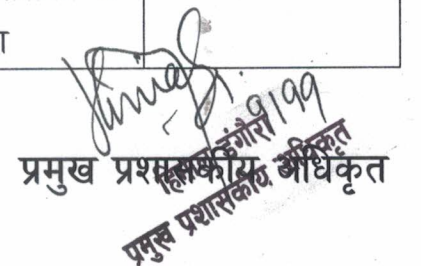 ९।११
प्रमुख प्रशासकीय अधिकृत
प्रमुख प्रशासकीय अधिकृत